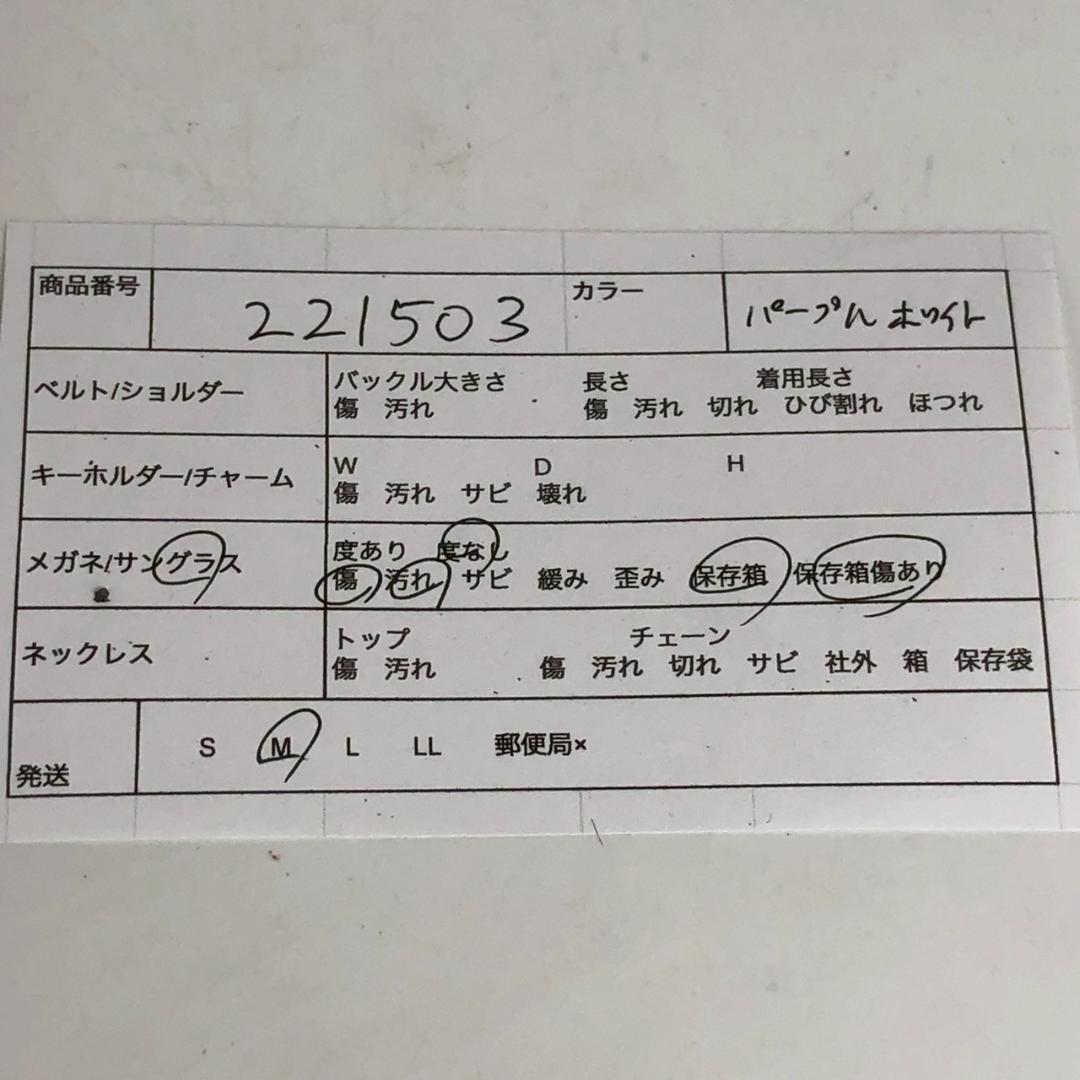 商品番号 221503 カラー パープル ホワイト
ベルト/ショルダー バックル大きさ 長さ 着用長さ
傷 汚れ 傷 汚れ 切れ ひび割れ ほつれ
キーホルダー/チャーム W D H
傷 汚れ サビ 壊れ
メガネ/サングラス 度あり 度なし
傷 汚れ サビ 緩み 歪み 保存箱 保存箱傷あり
ネックレス トップ チェーン
傷 汚れ 傷 汚れ 切れ サビ 社外 箱 保存袋
発送 S M L LL 郵便局×